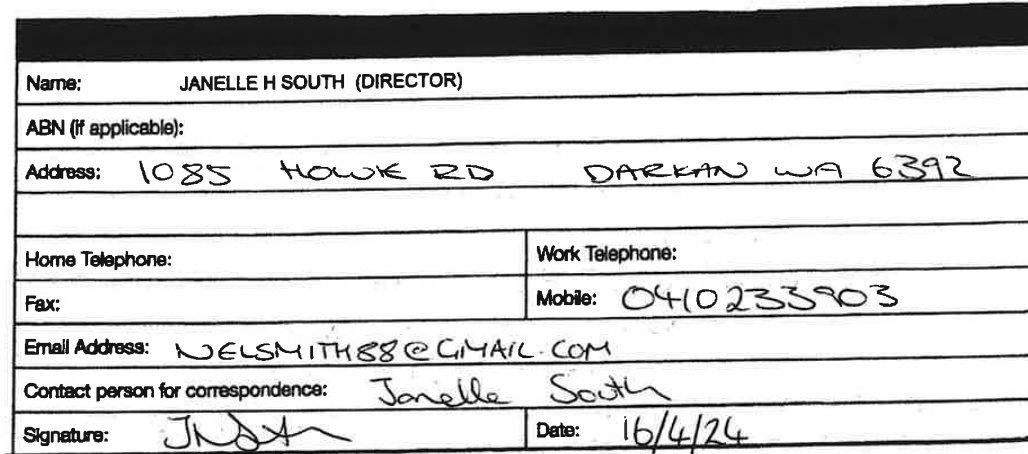 Name: JANELLE H SOUTH (DIRECTOR)
ABN (if applicable):
Address: 1085 HOWIE RD DARKAN WA 6392
Home Telephone: Work Telephone:
Fax: Mobile: 0410233903
Email Address: NELSMITH88@GMAIL.COM
Contact person for correspondence: Janelle South
Signature:
Date: 16/4/24